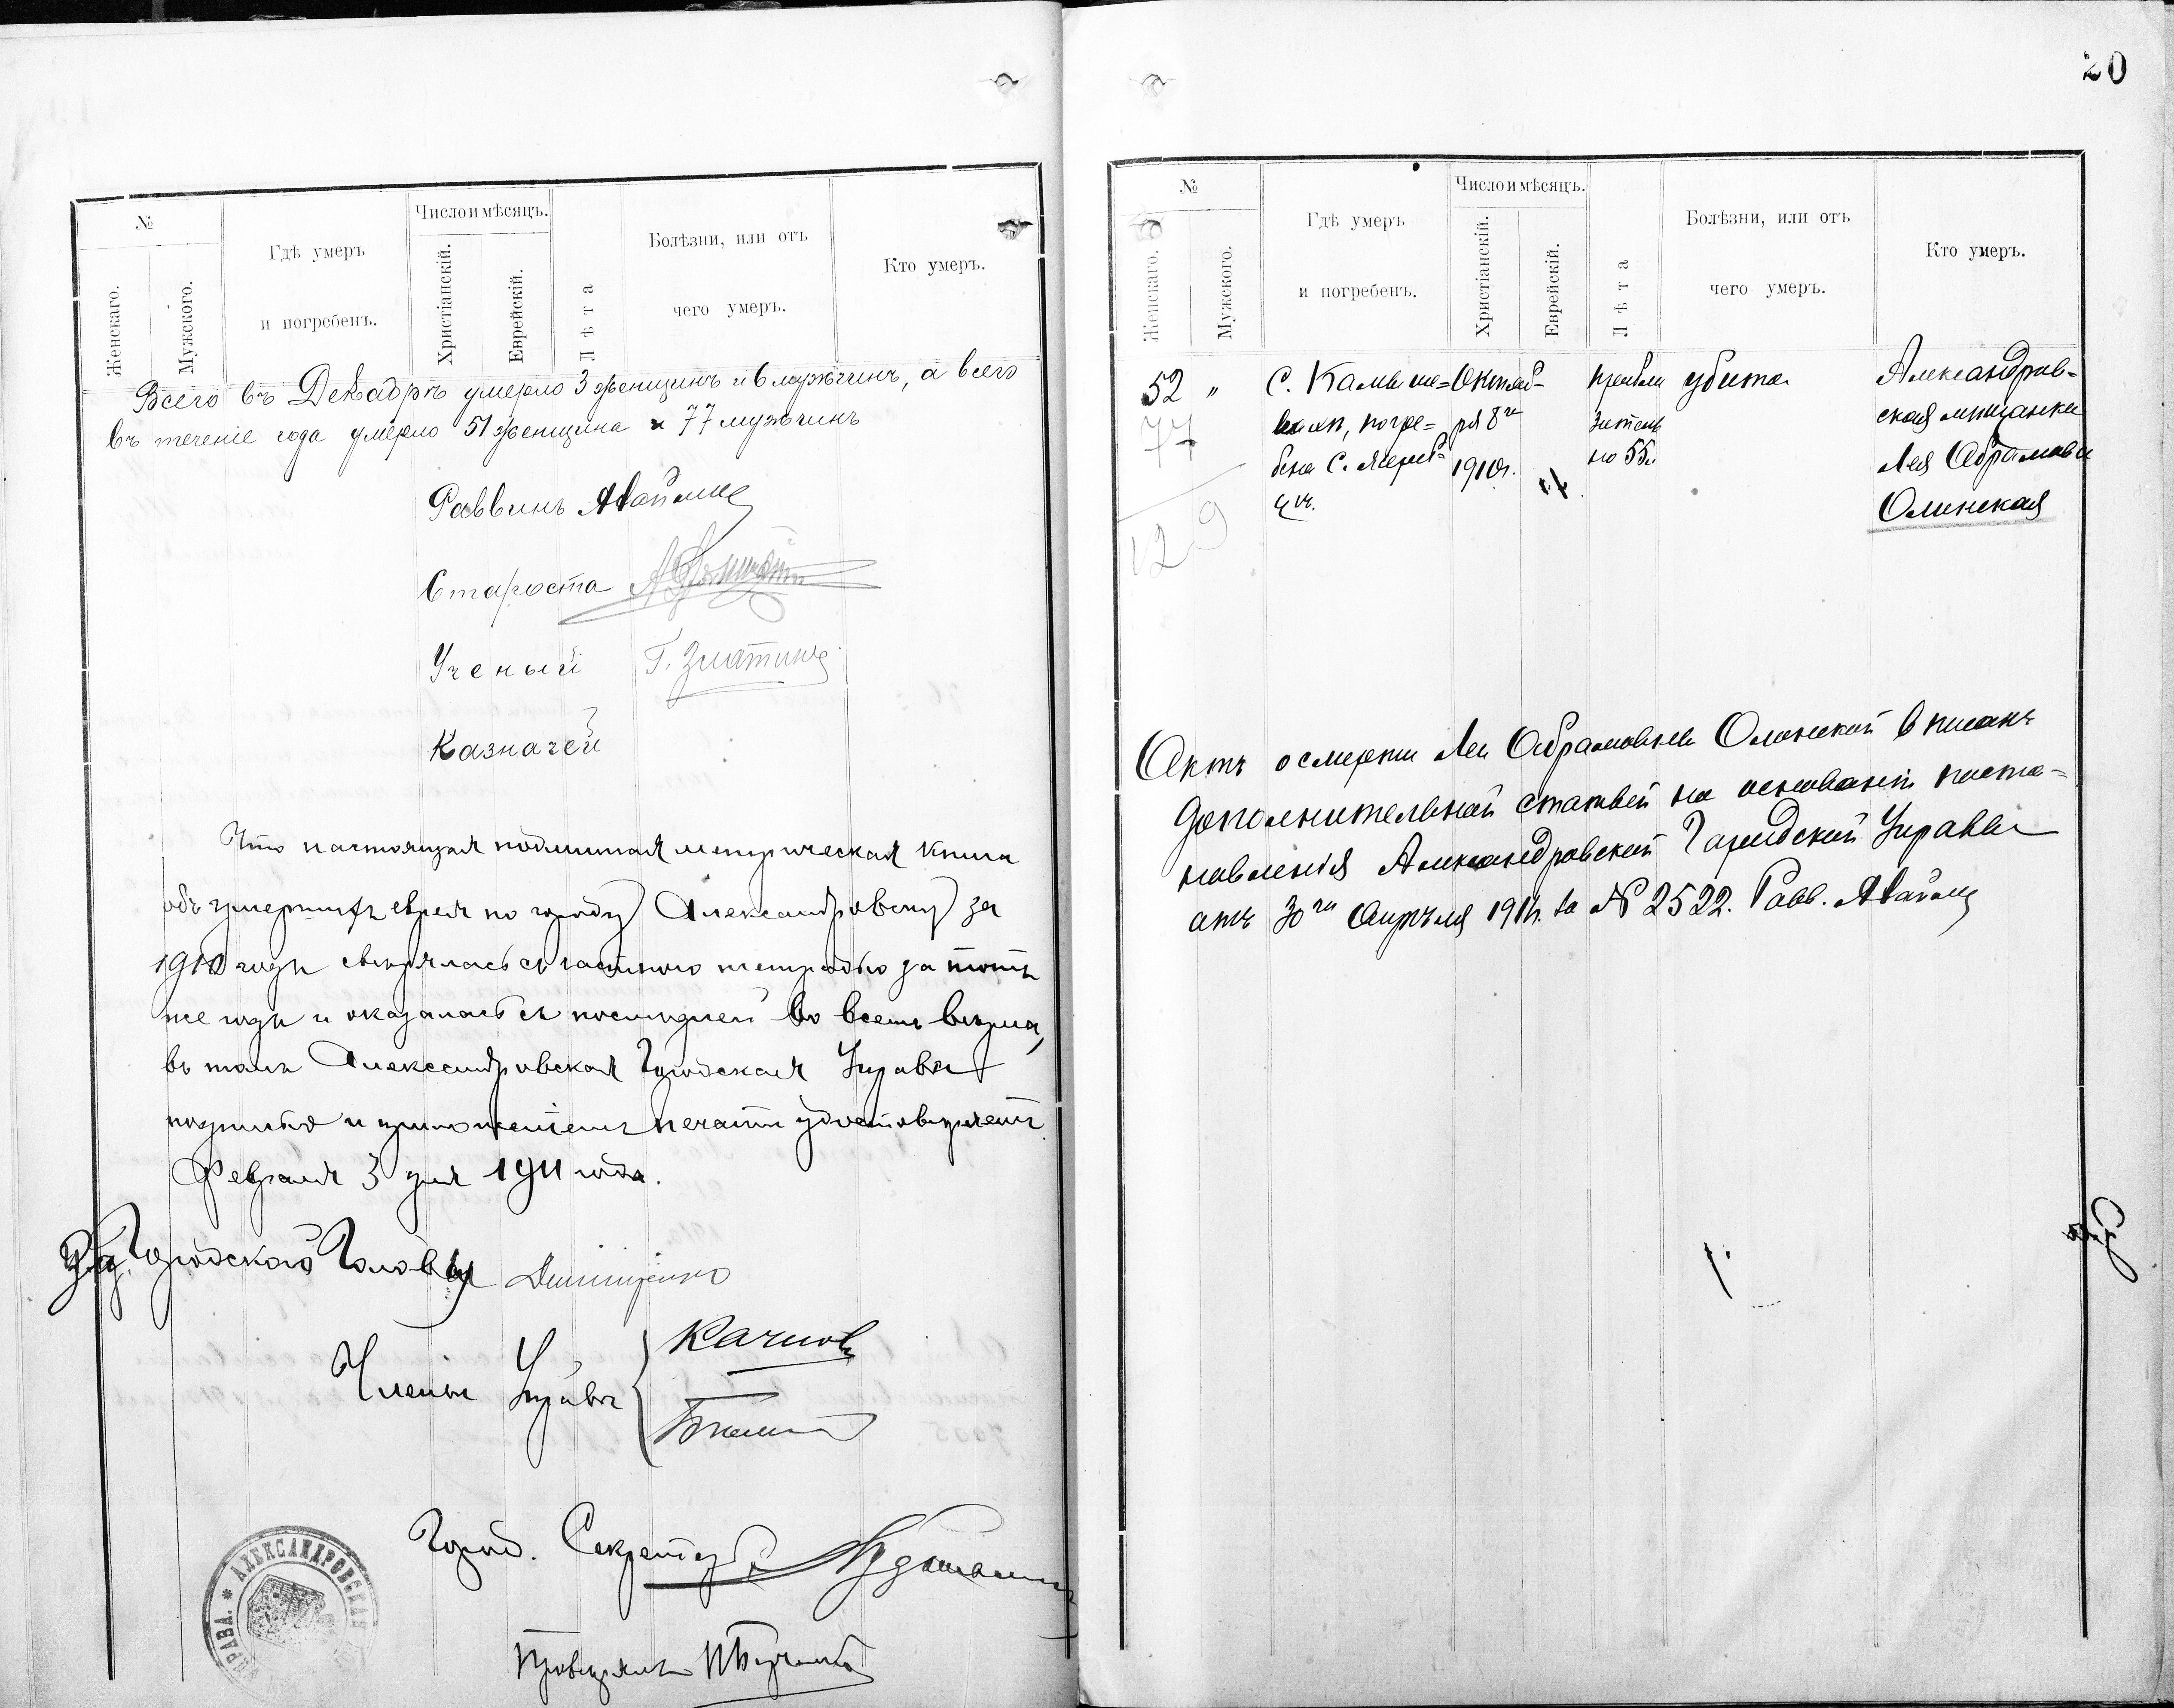 №
Женскаго.
Мужского.
Гдѣ умеръ
и погребенъ.
Число и мѣсяцъ.
Христіанскій.
Еврейскій.
Лѣта
Болѣзни, или отъ
чего умеръ.
Кто умеръ.
Всего въ Декабрѣ умерло 3 женщинъ и 6 мужчинъ, а всего
въ теченіе года умерло 51 женщина и 77 мужчинъ
Раввинъ
Староста
Ученый Г. Златинъ
Казначей
Что настоящая подлинная метрическая книга
объ умершихъ евреяхъ по городу Александровску за
1910 годъ свѣрялась съ частною тетрадью за тотъ
же годъ и оказалась съ послѣдней во всемъ вѣрна,
въ томъ Александровская Городская Управа
подписью и приложеніемъ печати удостовѣряетъ
Февраля 3 дня 1911 года.
Городского Головы
Члены Управы
Город. Секретарь
Провѣрялъ
* АЛЕКСАНДРОВСКАЯ УПРАВА.
20
№
Женскаго.
Мужского.
Гдѣ умеръ
и погребенъ.
Число и мѣсяцъ.
Христіанскій.
Еврейскій.
Лѣта
Болѣзни, или отъ
чего умеръ.
Кто умеръ.
52 " с. Камыше= Октяб= убита Александров=
77 погре= ря 8го зитель ская мѣщанка
бена с. 1910г. но 55л. Лея Абрамовна
Олинская
129
Актъ о смерти Леи Абрамовны Олинской вписанъ
дополнительной статьей на основаніи поста=
новленія Александровской Городской Управы
отъ 30го Апрѣля 1911г. за № 2522. Равв.